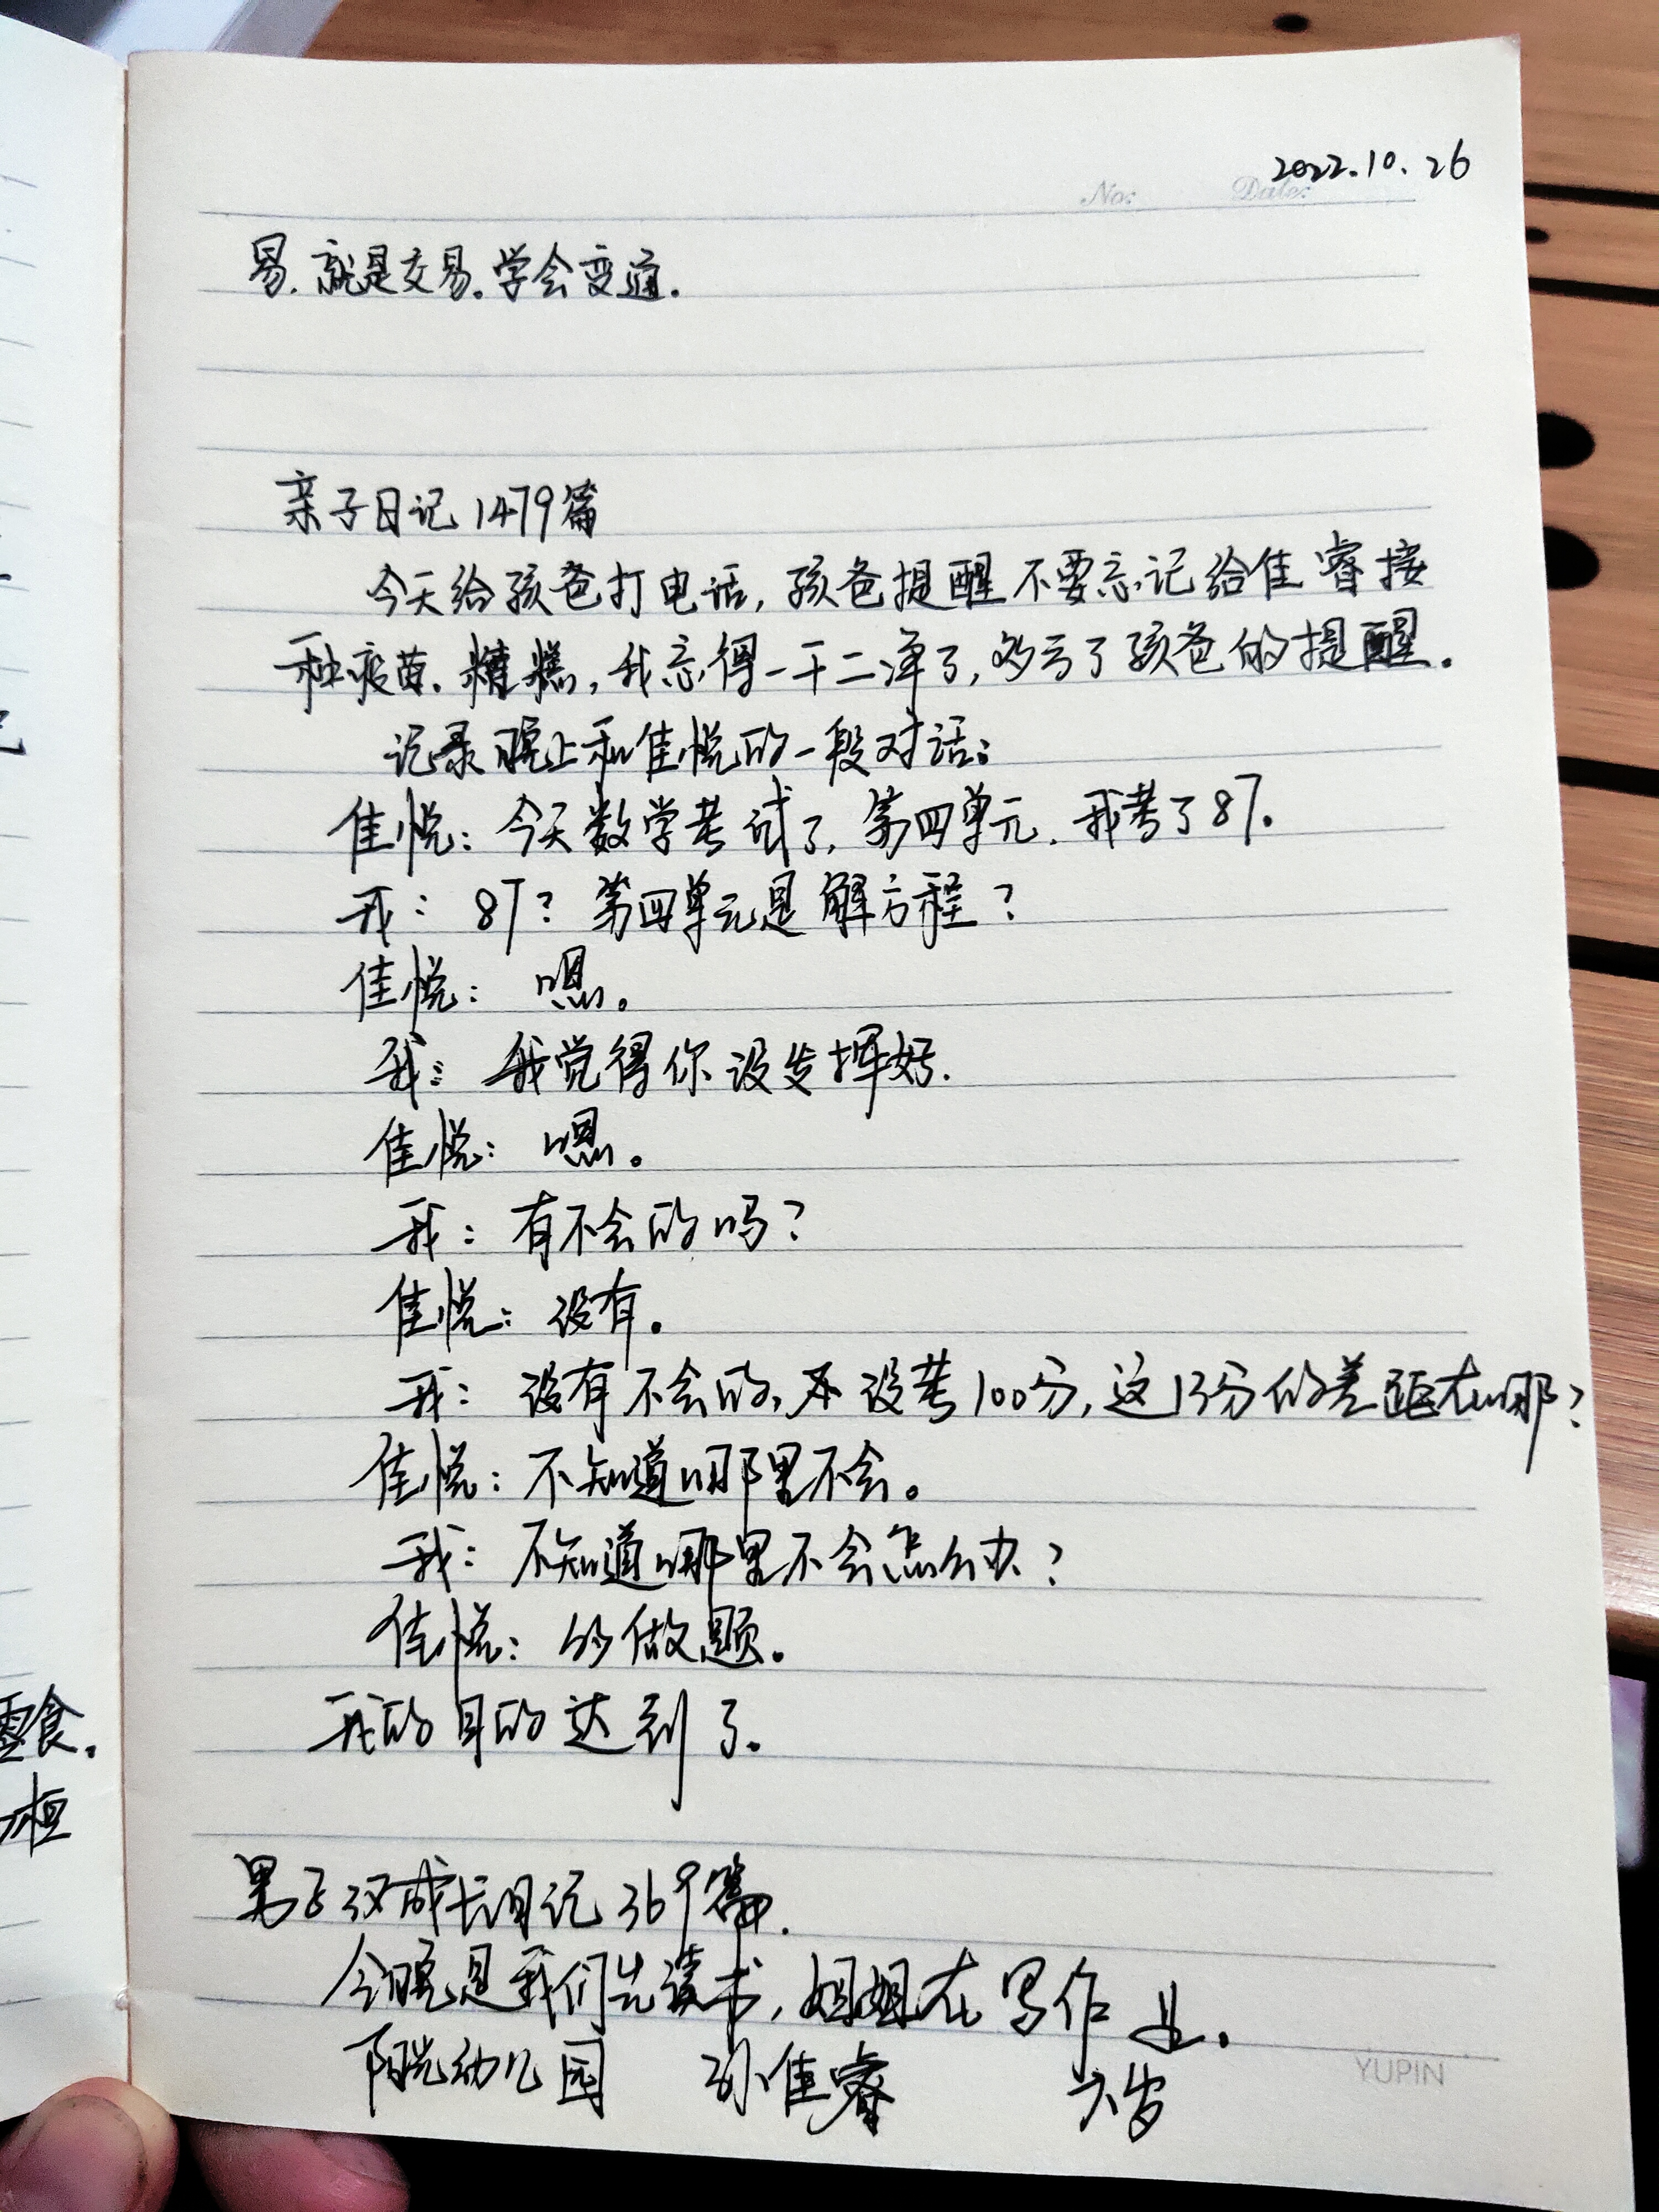 2022.10.26
No: Date:
易.就是交易.学会变通.
亲子日记1479篇
今天给孩爸打电话,孩爸提醒不要忘记给佳睿接
种疫苗.糟糕,我忘得一干二净了,多亏了孩爸的提醒.
记录晚上和佳悦的一段对话:
佳悦:今天数学考试了,第四单元.我考了87.
我:87?第四单元是解方程?
佳悦:嗯。
我:我觉得你没发挥好.
佳悦:嗯。
我:有不会的吗?
佳悦:没有。
我:没有不会的,又没考100分,这13分的差距在哪?
佳悦:不知道哪里不会。
我:不知道哪里不会怎么办?
佳悦:多做题。
我的目的达到了.
男子汉成长日记369篇.
今晚是我们先读书,姐姐在写作业.
阳光幼儿园 孙佳睿 六岁
YUPIN
零食.